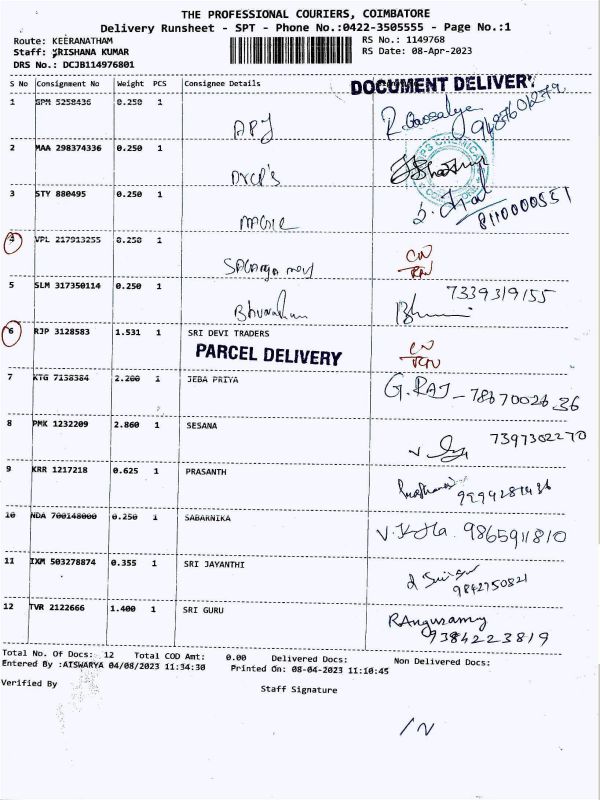 THE PROFESSIONAL COURIERS, COIMBATORE
Delivery Runsheet - SPT - Phone No.:0422-3505555 - Page No.:1
Route: KEERANATHAM RS No.: 1149768
Staff: KRISHANA KUMAR RS Date: 08-Apr-2023
DRS No.: DCJB114976801
S No Consignment No Weight PCS Consignee Details
DOCUMENT DELIVERY
1 GPM 5258436 0.250 1
APJ
2 MAA 298374336 0.250 1
3 STY 880495 0.250 1
8110000551
4 VPL 217913255 0.250 1
CN
5 SLM 317350114 0.250 1
7339319155
6 RJP 3128583 1.531 1 SRI DEVI TRADERS
CN
PARCEL DELIVERY
7 KTG 7138384 2.200 1 JEBA PRIYA
G.RAJ - 7867002636
8 PMK 1232209 2.860 1 SESANA
7397302270
9 KRR 1217218 0.625 1 PRASANTH
10 NDA 700148000 0.250 1 SABARNIKA
9865911810
11 IXM 503278874 0.355 1 SRI JAYANTHI
9842750821
12 TVR 2122666 1.400 1 SRI GURU
RAngusamy
9384223819
Total No. Of Docs: 12 Total COD Amt: 0.00 Delivered Docs: Non Delivered Docs:
Entered By :AISWARYA 04/08/2023 11:34:30 Printed On: 08-04-2023 11:10:45
Verified By
Staff Signature